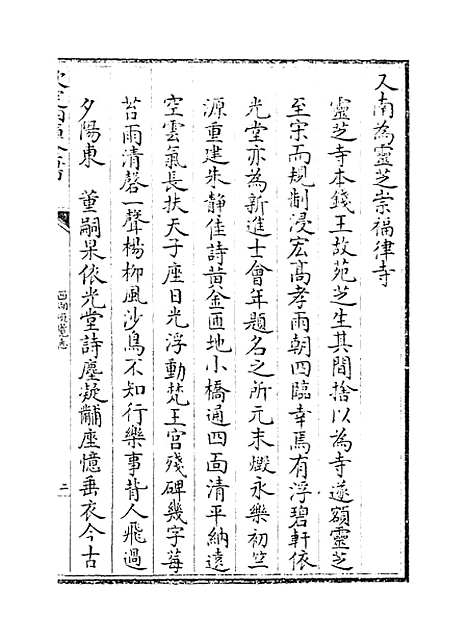 又南為靈芝崇福律寺
靈芝寺本錢王故苑芝生其間捨以為寺遂額靈芝
至宋而規制浸宏高孝兩朝四臨幸焉有浮碧軒依
光堂亦為新進士會年題名之所元末燬永樂初竺
源重建朱靜佳詩黃金匝地小橋通四面清平納遠
空雲氣長扶天子座日光浮動梵王宮殘碑幾字莓
苔雨清磬一聲楊柳風沙鳥不知行樂事背人飛過
夕陽東 董嗣杲依光堂詩塵凝黼座憶垂衣今古
欽定四庫全書
西湖遊覽志
二